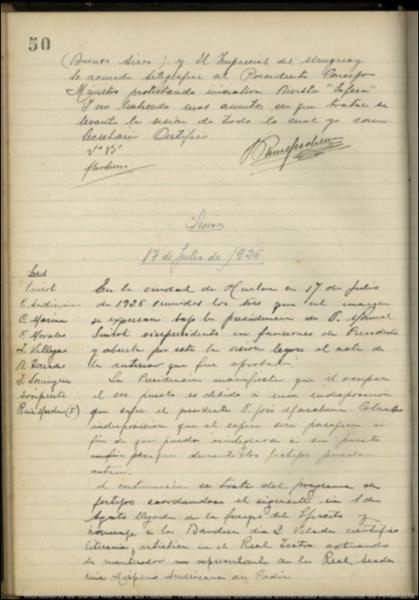 50
(Buenos Aires) y El Imparcial del Uruguay
Se acuerda telegrafiar al Presidente Consejo
Ministros protestando iniciativa Revista "Esfera"
Y no habiendo mas asuntos de que tratar se
levanta la sesion de todo lo cual yo como
Secretario Certifico
Vº Bº
Sesion
17 de Julio de 1926.
Sres
Siurot
C. Marina
F. Morales
J. Villegas
J. Dominguez
En la ciudad de Huelva en 17 de Julio
de 1926 reunidos los Sres que al margen
se expresan bajo la presidencia de D. Manuel
Siurot vicepresidente en funciones de Presidente
y abierta por este la sesion leyose el acta de
la anterior que fue aprobada.
La Presidencia manifiesta que el ocupar
el ese puesto es debido a una indisposición
que sufre el presidente D. José Marchena Colombo
indisposicion que el espera sera pasajera a
fin de que pueda reintegrarse a su puesto
para que durante los festejos pueda
actuar.
A continuacion se trata del programa de
festejos acordandose el siguiente: dia 1 de
Agosto llegada de las fuerzas del Ejercito y
homenaje a la Bandera dia 2 Velada cientifico
literaria, artistica en el Real Teatro actuando
de mantenedor un representante de la Real Acade
mia Hispano Americana de Cadiz